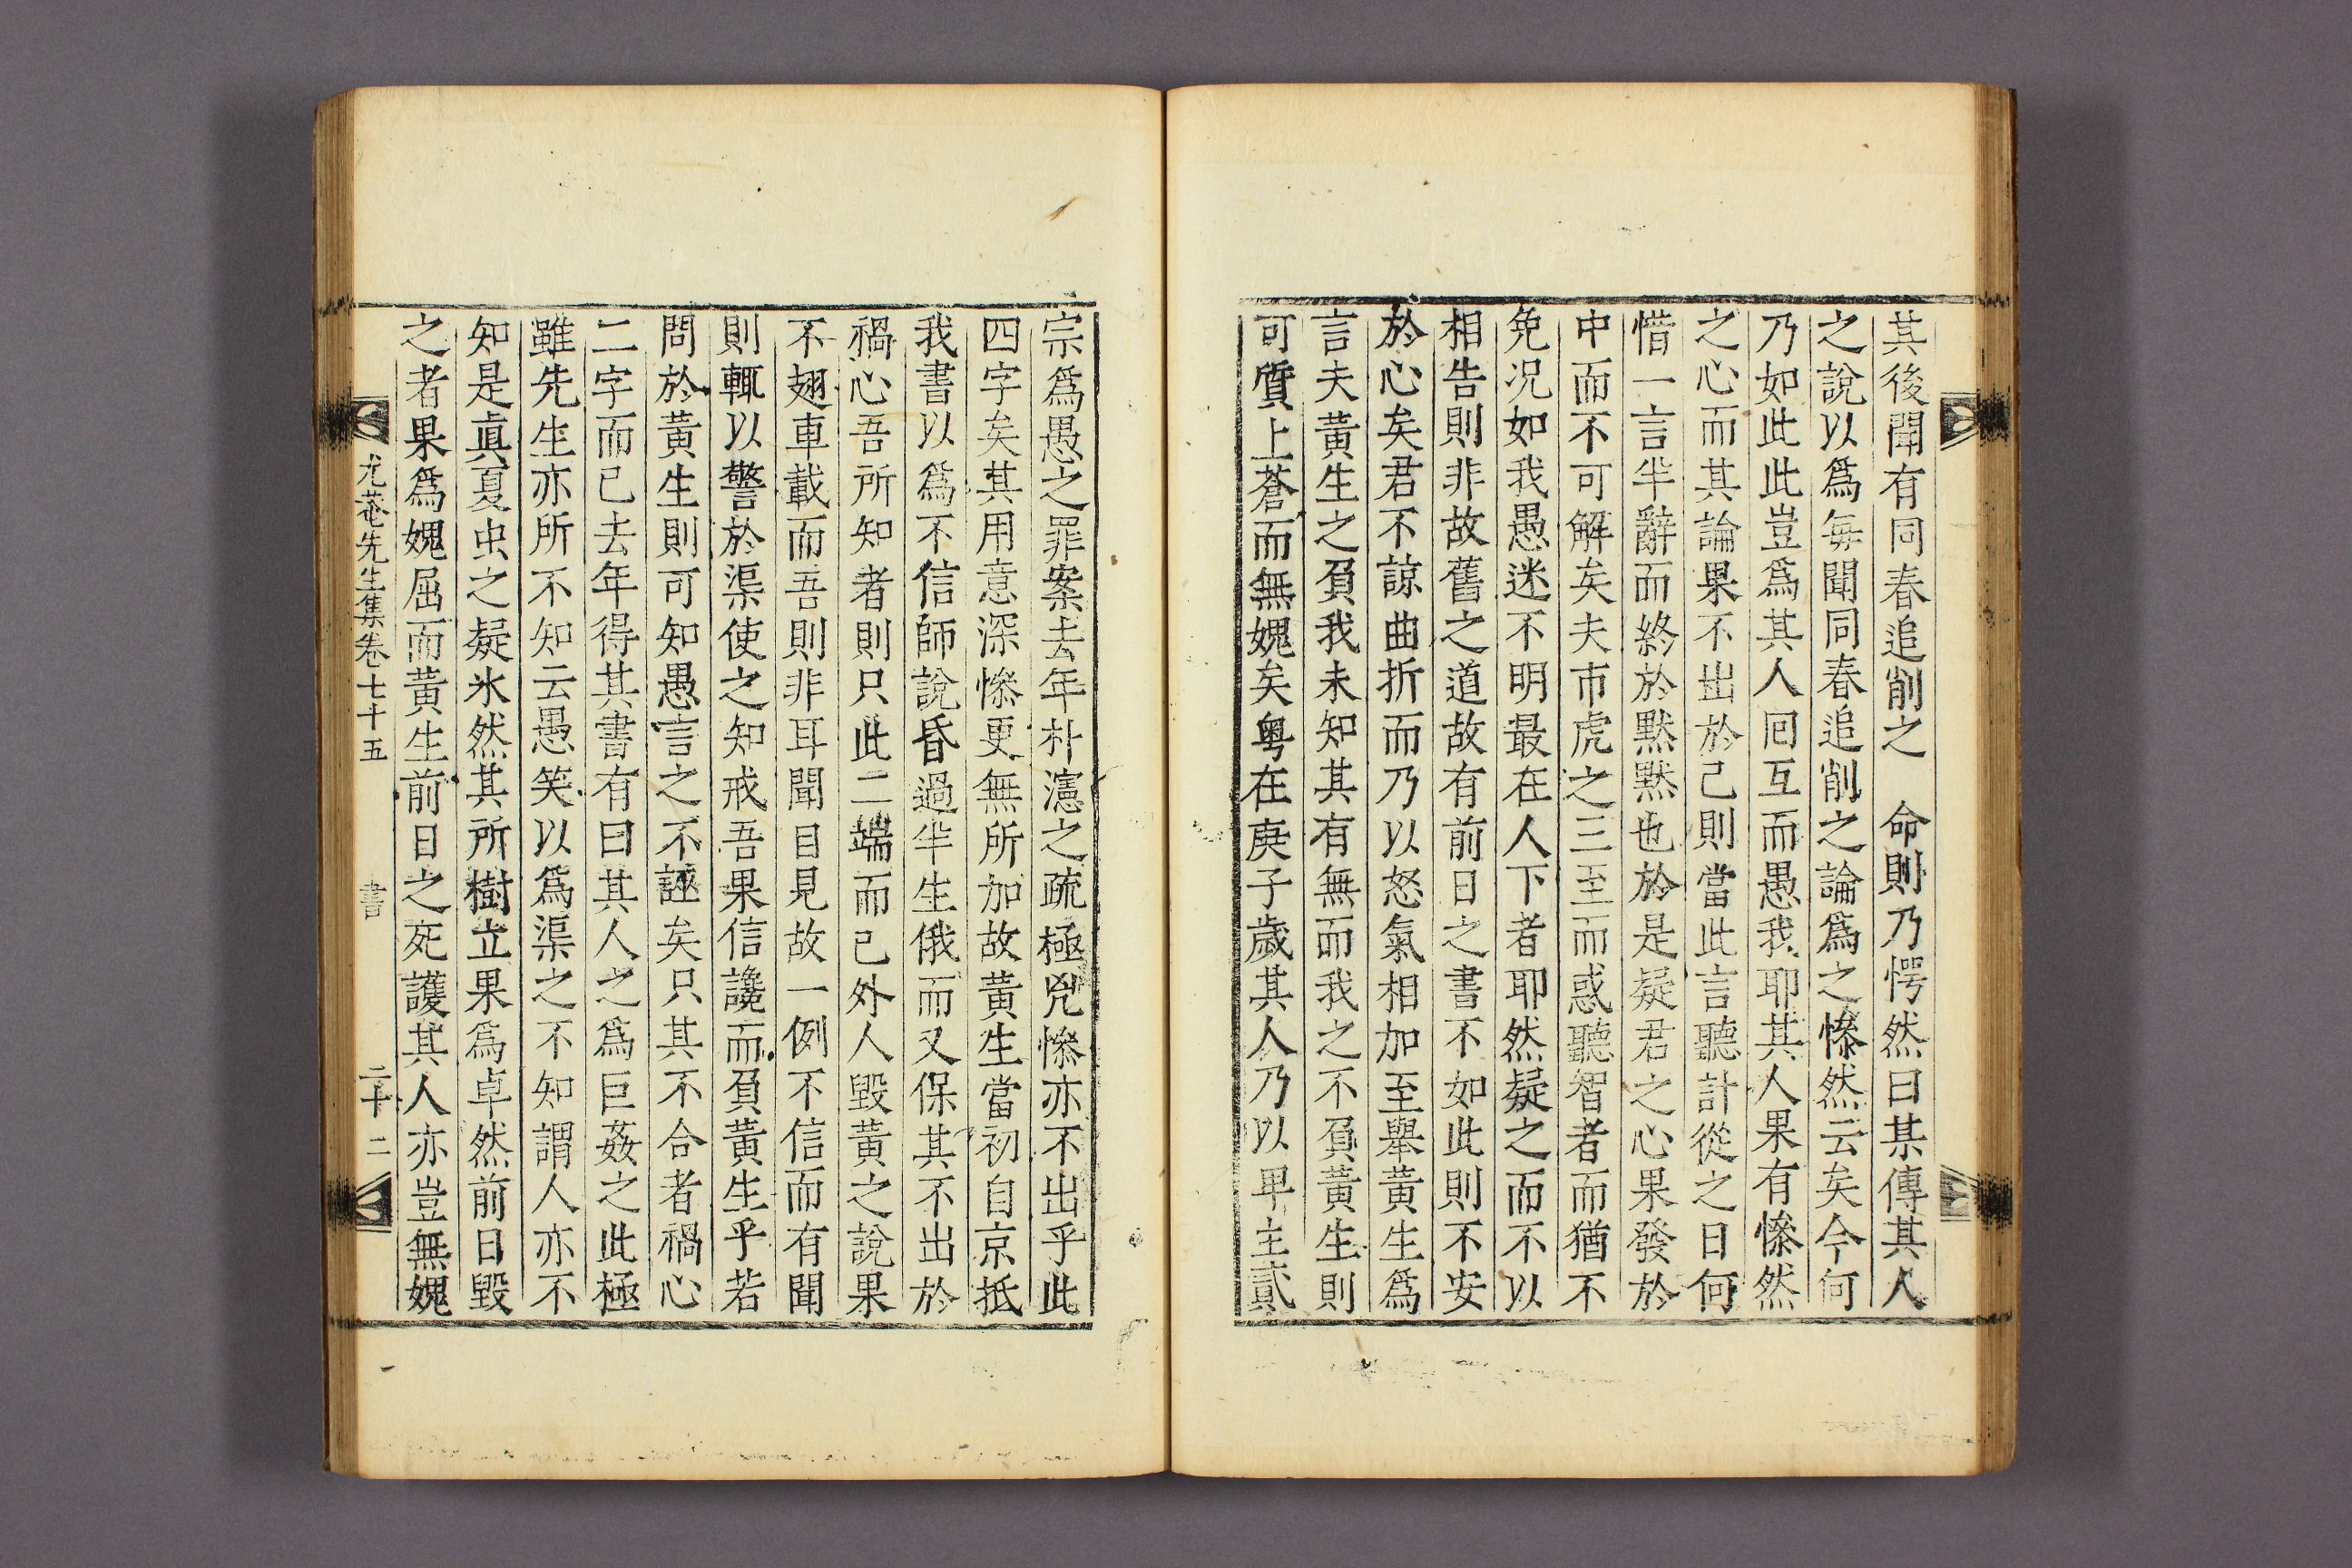 其後聞有同春追削之　命則乃愕然曰某傳其人
之說以爲每聞同春追削之論爲之慘然云矣今何
乃如此此豈爲其人回互而愚我耶其人果有慘然
之心而其論果不出於己則當此言聽計從之日何
惜一言半辭而終於默默也於是疑君之心果發於
中而不可解矣夫市虎之三至而惑聽智者而猶不
免况如我愚迷不明最在人下者耶然疑之而不以
相告則非故舊之道故有前日之書不如此則不安
於心矣君不諒曲折而乃以怒氣相加至舉黃生爲
言夫黃生之負我未知其有無而我之不負黃生則
可質上蒼而無媿矣粤在庚子歲其人乃以卑主貳
宗爲愚之罪案去年朴瀗之疏極兇慘亦不出乎此
四字矣其用意深慘更無所加故黃生當初自京抵
我書以爲不信師說昏過半生俄而又保其不出於
禍心吾所知者則只此二端而已外人毀黃之說果
不翅車載而吾則非耳聞目見故一例不信而有聞
則輒以警於渠使之知戒吾果信讒而負黃生乎若
問於黃生則可知愚言之不誣矣只其不合者禍心
二字而已去年得其書有曰其人之爲巨姦之此極
雖先生亦所不知云愚笑以爲渠之不知謂人亦不
知是眞夏虫之疑氷然其所樹立果爲卓然前日毀
之者果爲媿屈而黃生前日之死護其人亦豈無媿
尤菴先生集卷七十五　書　二十二